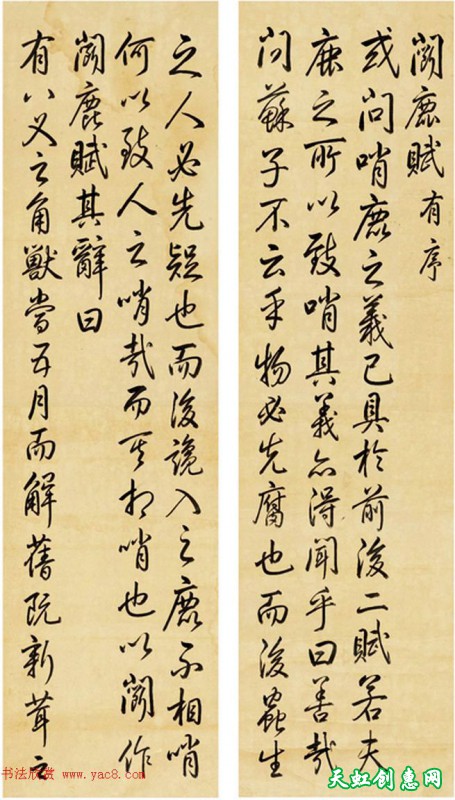 鬭鹿賦有序
或問哨鹿之義已具於前後二賦若夫
鹿之所以致哨其義亦得聞乎曰善哉
問蘇子不云乎物必先腐也而後蟲生
之人必先疑也而後讒入之鹿不相哨
何以致人之哨哉而其相哨也以鬭作
鬭鹿賦其辭曰
有八叉之角獸當五月而解舊既新茸之
书法欣赏 www.yac8.com
天虹创惠网